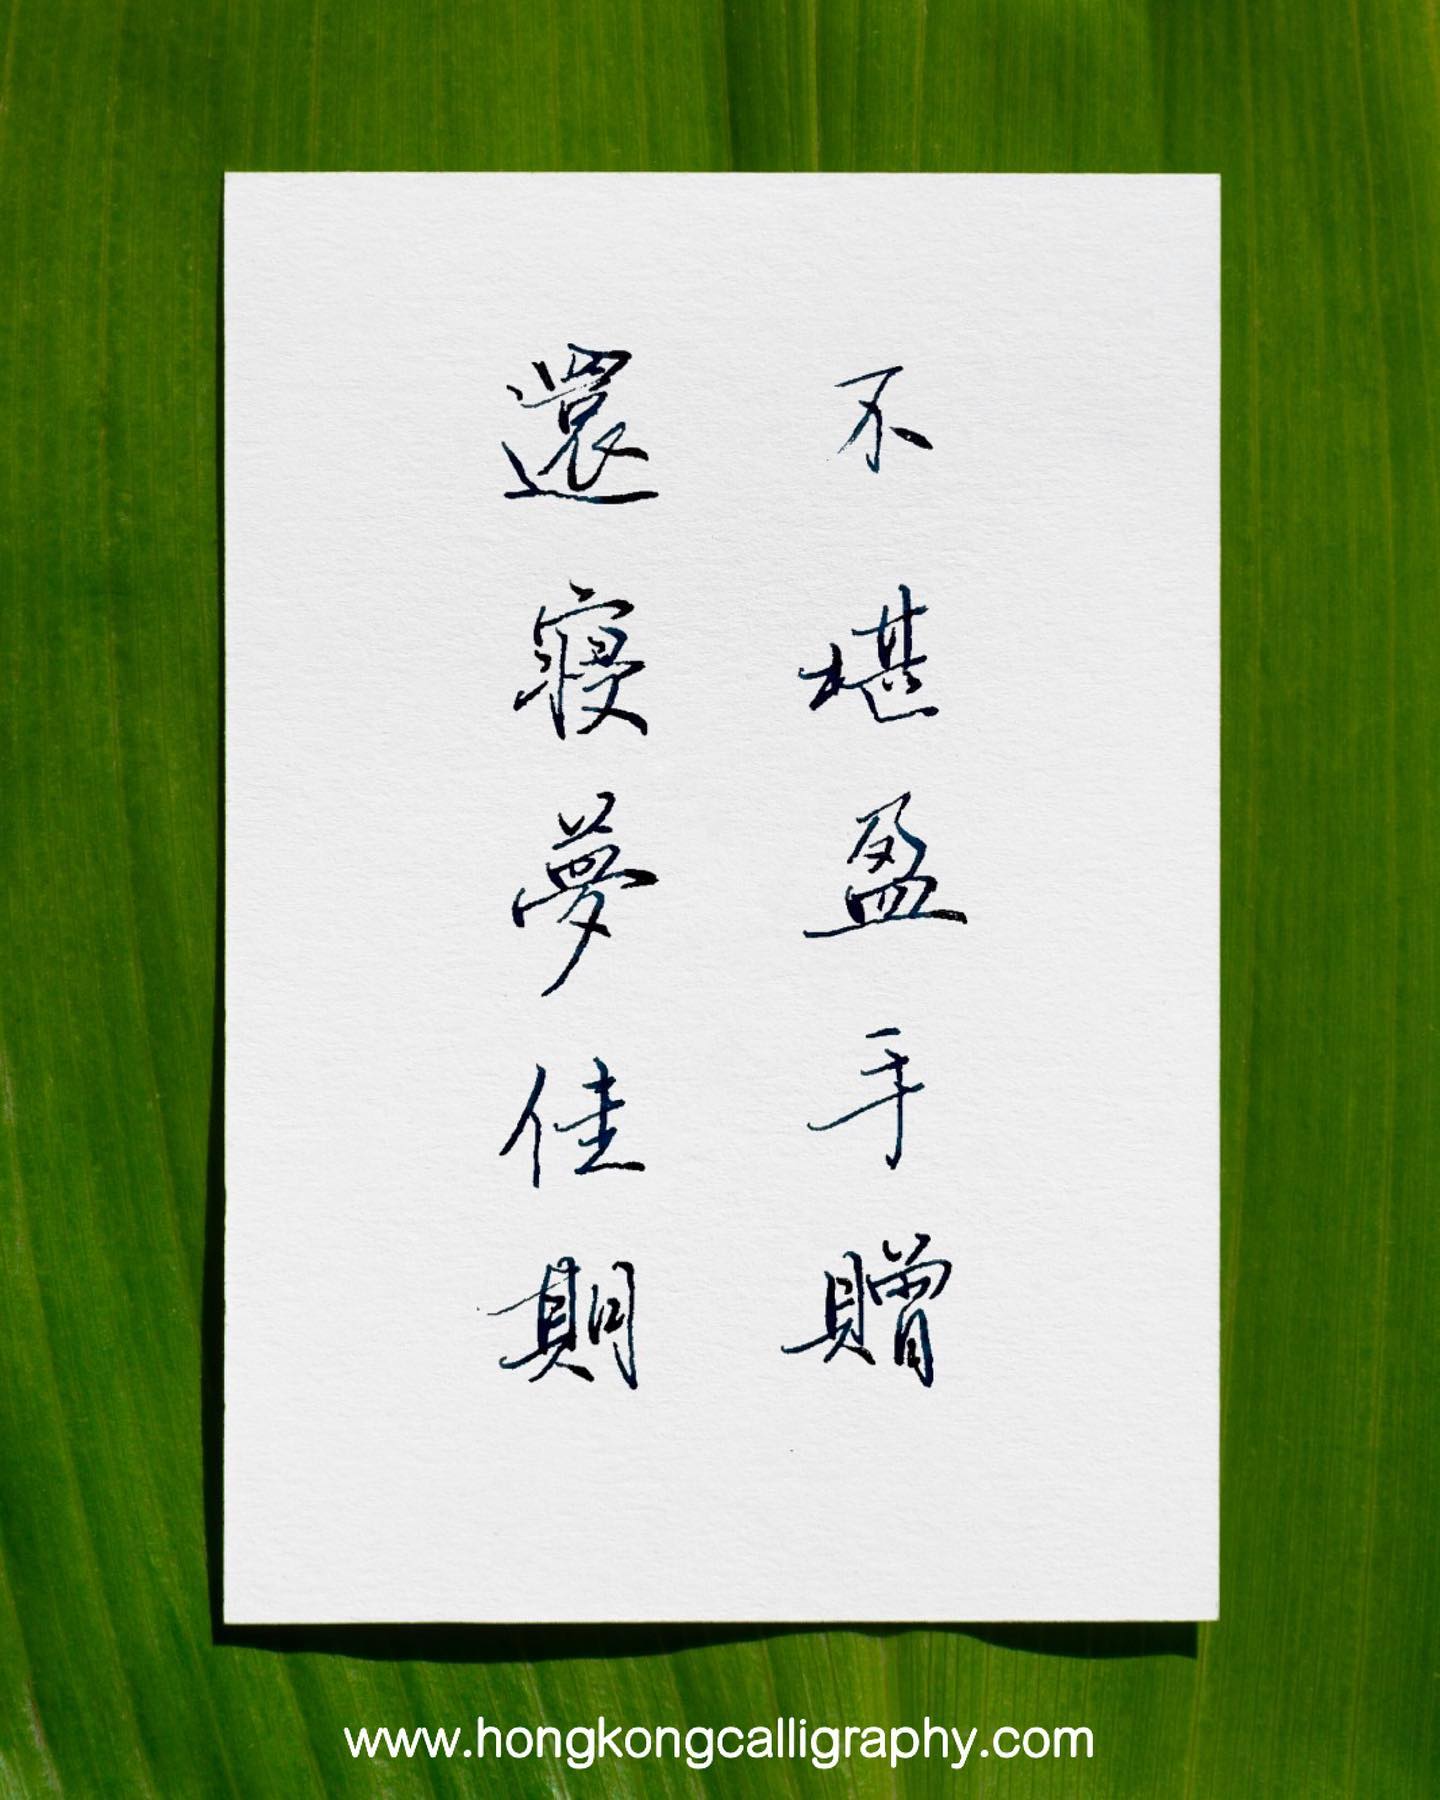 不堪盈手贈
還寢夢佳期
www.hongkongcalligraphy.com